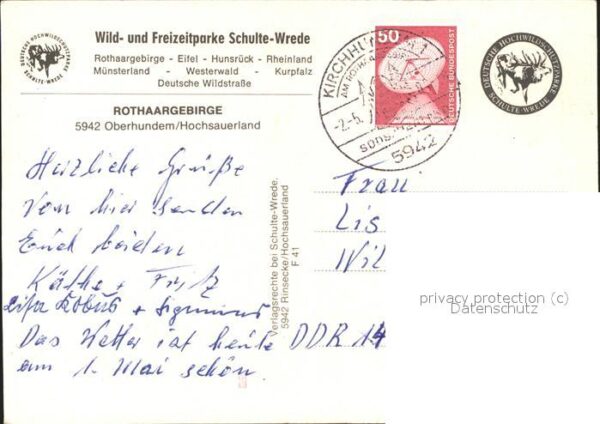 Wild- und Freizeitparke Schulte-Wrede
Rothaargebirge - Eifel - Hunsrück - Rheinland
Münsterland - Westerwald - Kurpfalz
Deutsche Wildstraße
ROTHAARGEBIRGE
5942 Oberhundem/Hochsauerland
DEUTSCHE HOCHWILDSCHUTZPARKE
SCHULTE-WREDE
50
DEUTSCHE BUNDESPOST
KIRCHHUNDEM 1
AM ROTHAAR
-2.-5.
5942
DEUTSCHE HOCHWILDSCHUTZPARKE
SCHULTE WREDE
Herzliche Grüße
vom hier senden
Euch beiden
Käthe + Fritz
+ Sigmund
Das Wetter ist heute
am 1. Mai schön
Verlagsrechte bei Schulte-Wrede,
5942 Rinsecke/Hochsauerland
F 41
Frau
Lis
Wil
DDR 14
privacy protection (c)
Datenschutz